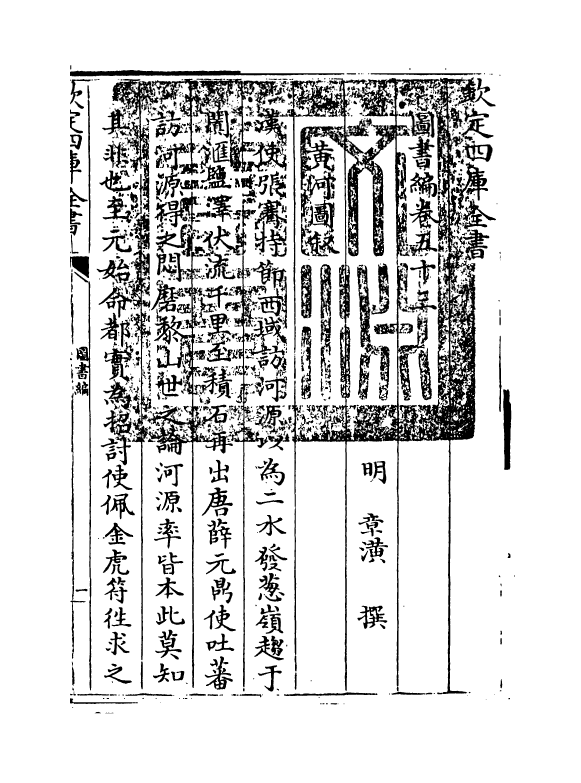 欽定四庫全書
圖書編卷五十三
明 章潢 撰
黃河圖敘
漢使張騫持節西域訪河源以為二水發葱嶺趨于
闐匯鹽澤伏流千里至積石再出唐薛元鼎使吐蕃
訪河源得之悶磨黎山世之論河源率皆本此莫知
其非也至元始命都實為招討使佩金虎符往求之
欽定四庫全書
圖書編
二